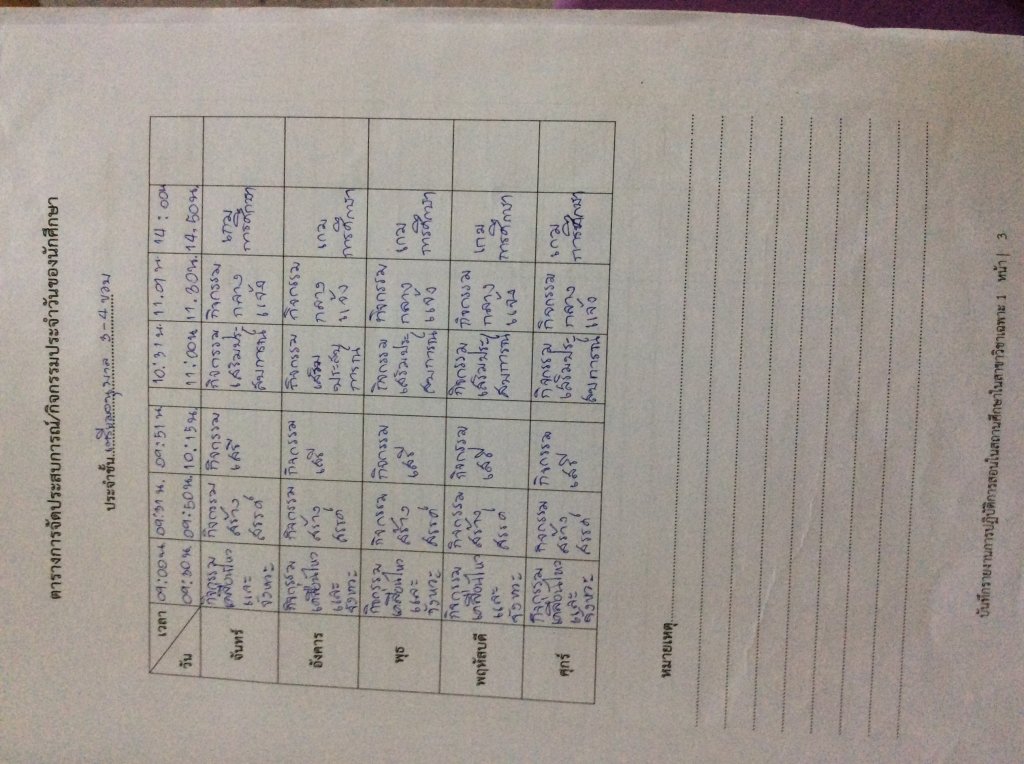 ตารางการจัดประสบการณ์/กิจกรรมประจำวันของนักศึกษา
ประจำชั้น เตรียมอนุบาล 3-4 ขวบ
เวลา
วัน
09:00น
09:30น
09:31น.
09:50น
09:51น
10:15น
10:31น
11:00น
11.01น
11.30น
14:00น
14.50น
จันทร์
กิจกรรม
เคลื่อนไหว
และ
จังหวะ
กิจกรรม
สร้าง
สรรค์
กิจกรรม
เสรี
กิจกรรม
เสริมประ
สบการณ์
กิจกรรม
กลาง
แจ้ง
เกม
การศึกษา
อังคาร
กิจกรรม
เคลื่อนไหว
และ
จังหวะ
กิจกรรม
สร้าง
สรรค์
กิจกรรม
เสรี
กิจกรรม
เสริม
ประสบ
การณ์
กิจกรรม
กลาง
แจ้ง
เกม
การศึกษา
พุธ
กิจกรรม
เคลื่อนไหว
และ
จังหวะ
กิจกรรม
สร้าง
สรรค์
กิจกรรม
เสรี
กิจกรรม
เสริมประ
สบการณ์
กิจกรรม
กลาง
แจ้ง
เกม
การศึกษา
พฤหัสบดี
กิจกรรม
เคลื่อนไหว
และ
จังหวะ
กิจกรรม
สร้าง
สรรค์
กิจกรรม
เสรี
กิจกรรม
เสริมประ
สบการณ์
กิจกรรม
กลาง
แจ้ง
เกม
การศึกษา
ศุกร์
กิจกรรม
เคลื่อนไหว
และ
จังหวะ
กิจกรรม
สร้าง
สรรค์
กิจกรรม
เสรี
กิจกรรม
เสริมประ
สบการณ์
กิจกรรม
กลาง
แจ้ง
เกม
การศึกษา
หมายเหตุ
บันทึกรายงานการปฏิบัติการสอนในสถานศึกษาในสาขาวิชาเฉพาะ 1 หน้า | 3